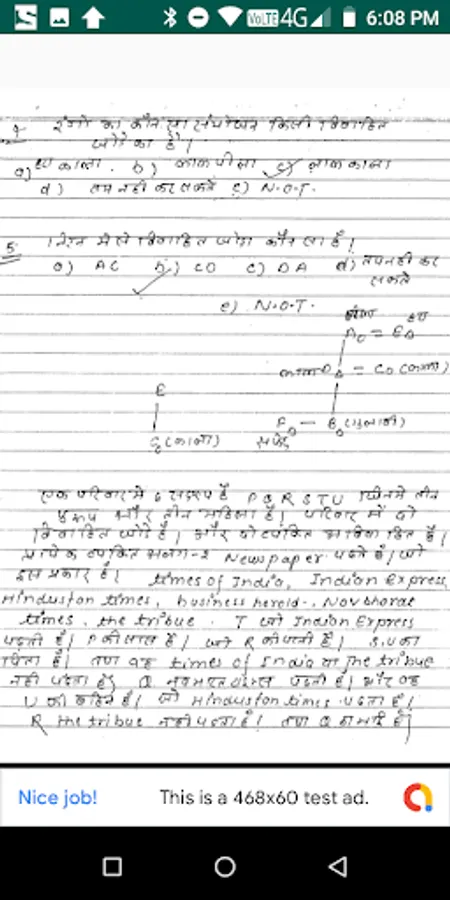 VoLTE 4G 6:08 PM
4. रंगो का कौन सा संयोजन किसी विवाहित
जोडे का है।
a) काला . b) लाल पीला c) लाल काला
d) तय नही कर सकते e) N.O.T.
5. निम्न मे से विवाहित जोडा कौन सा है।
a) AC b) CD c) DA d) तय नही कर
सकते
e) N.O.T.
E
C (काला)
सफेद
एक परिवार मे 6 सदस्य है P Q R S T U जिनमे तीन
पुरूष और तीन महिला है। परिवार में दो
विवाहित जोडे है। और दो व्यक्ति अविवाहित है।
प्रत्येक व्यक्ति अलग-2 Newspaper पढते है। जो
इस प्रकार है। times of India, Indian Express,
Hindustan times, business hereld., Navbharat
times, the tribue . T जो Indian Express
पढती है। P की सास है। जो R की पत्नी है। S, U का
पिता है। तथा वह times of India या The tribue
नही पढता है। Q नवभारत टाइम्स पढती है। और वह
U की बहिन है। जो Hindustan times पढता है।
R the tribue नही पढता है। तथा Q का भाई है।
Nice job! This is a 468x60 test ad.